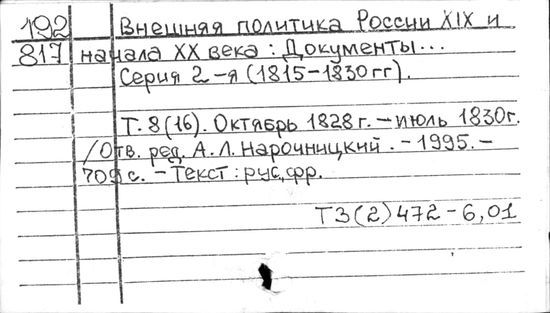 192 Внешняя политика России XIX и
817 начала XX века : Документы...
Серия 2-я (1815-1830 гг).
Т. 8(16). Октябрь 1828 г. - июль 1830г.
/Отв. ред. А. Л. Нарочницкий. - 1995. -
709 с. - Текст : рус, фр.
Т3(2)472-6,01